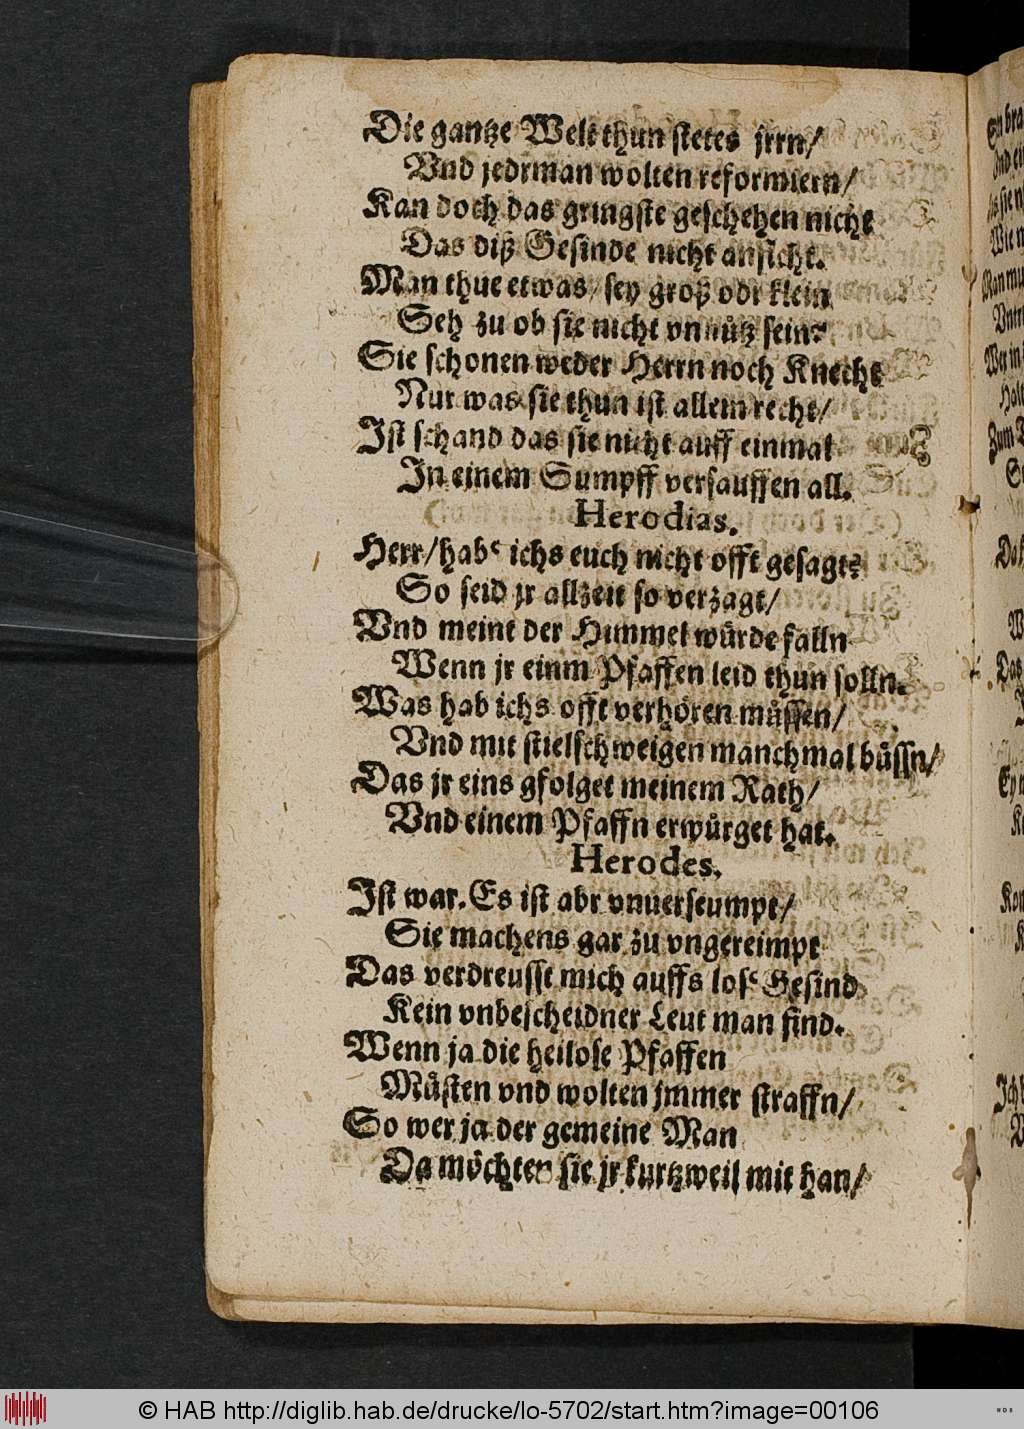 Die gantze Welt thun stetes jrrn/
Vnd jedrman wolten reformiern/
Kan doch das gringste geschehen nicht
Das diß Gesinde nicht ansicht.
Man thue etwas/ sey groß odr klein
Seh zu ob sie nicht vnnütz sein?
Sie schonen weder Herrn noch Knecht
Nur was sie thun ist allein recht/
Ist schand das sie nicht auff einmal
In einem Sumpff versauffen all.
Herodias.
Herr/hab' ichs euch nicht offt gesagt?
So seid jr allzeit so verzagt/
Vnd meint der Himmel würde falln
Wenn jr einm Pfaffen leid thun solln.
Was hab ichs offt verhören müssen/
Vnd mit stielschweigen manchmal büssn/
Das jr eins gfolget meinem Rath/
Vnd einem Pfaffn erwürget hat.
Herodes.
Ist war. Es ist abr vnuerseumpt/
Sie machens gar zu vngereimpt
Das verdreusst mich auffs los' Gesind
Kein vnbescheidner Leut man find.
Wenn ja die heilose Pfaffen
Müsten vnd wolten jmmer straffn/
So wer ja der gemeine Man
Da möchten sie jr kurtzweil mit han/
© HAB http://diglib.hab.de/drucke/lo-5702/start.htm?image=00106